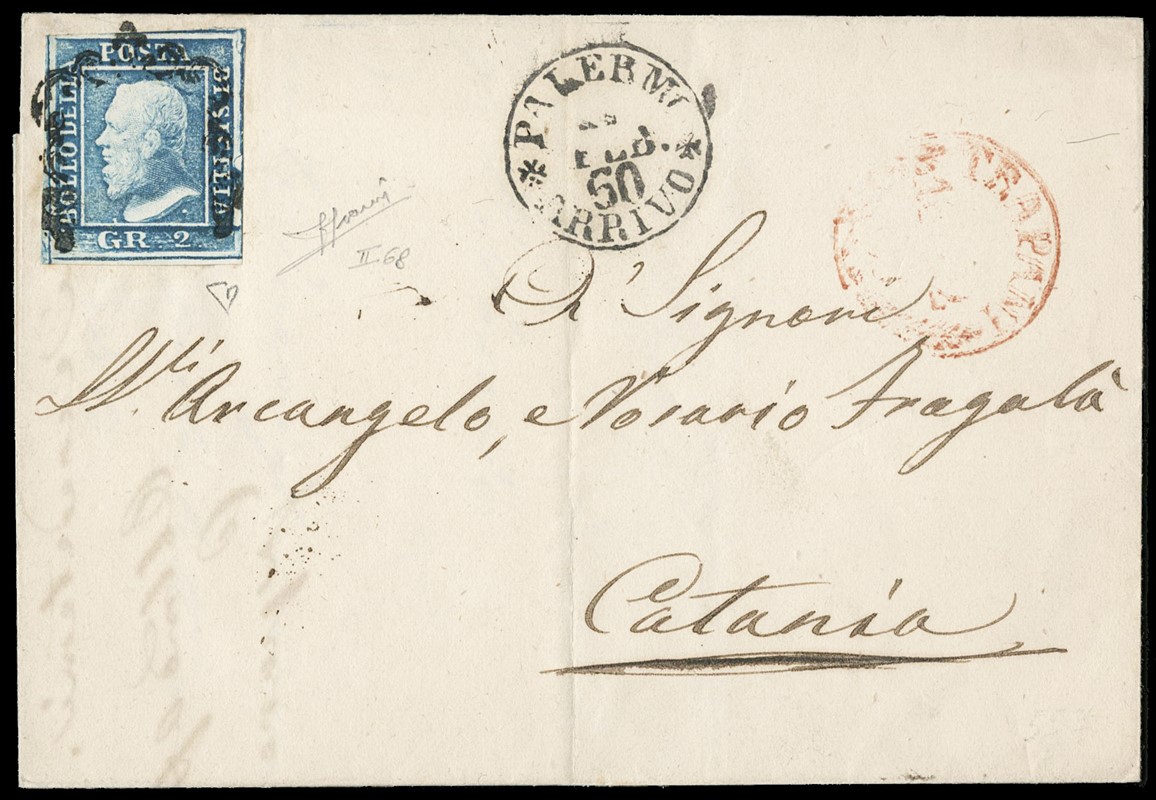 POSTA
BOLLO DELLA
DI SICILIA
GR. 2
PALERMO
FEB.
60
ARRIVO
TRAPANI
II-68
A' Signori
Arcangelo, e Rosario Fragalà
Catania